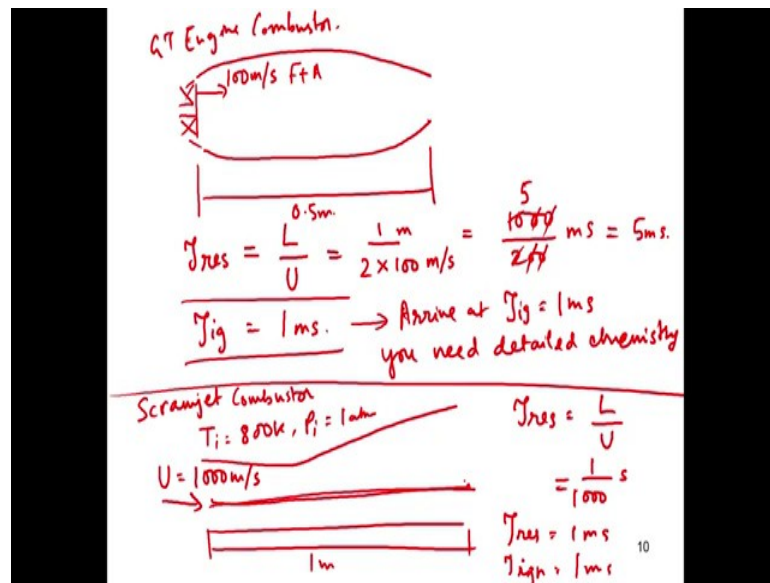 GT Engine Combustor.
100m/s F+A
0.5m.
τres = L/U = 1 m / 2 × 100 m/s = 5 1000/200 ms = 5ms.
τig = 1ms. → Arrive at τig = 1ms
you need detailed chemistry
Scramjet Combustor
Ti = 800K, Pi = 1atm
U = 1000m/s
1m
τres = L/U
= 1/1000 s
τres = 1ms
τign = 1ms
10